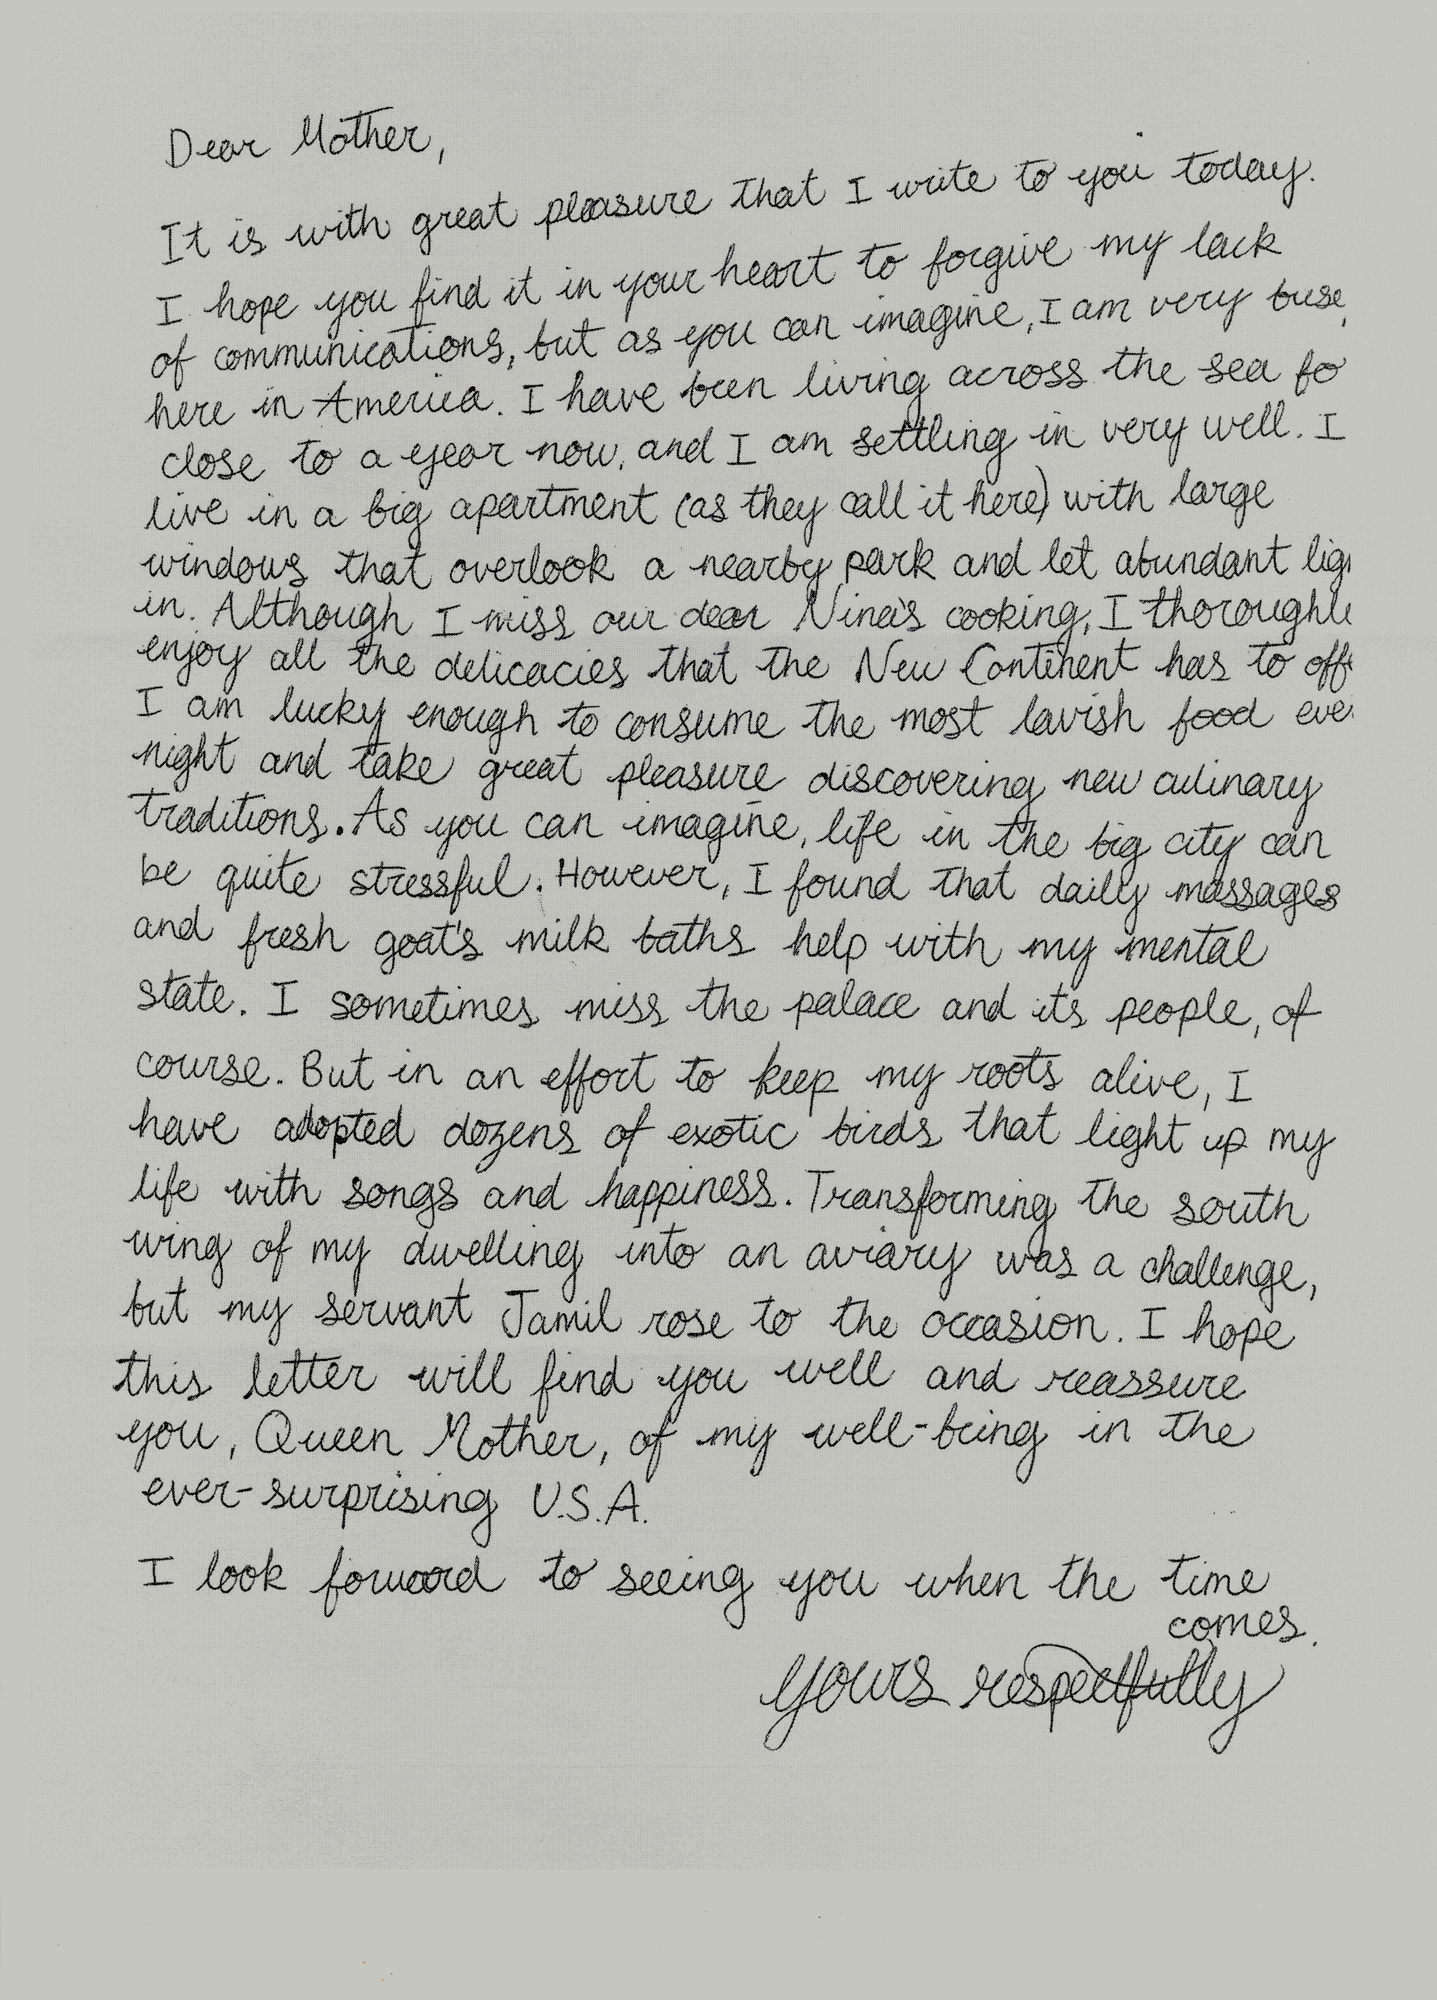 Dear Mother,
It is with great pleasure that I write to you today.
I hope you find it in your heart to forgive my lack
of communications, but as you can imagine, I am very buse
here in America. I have been living across the sea fo
close to a year now, and I am settling in very well. I
live in a big apartment (as they call it here) with large
windows that overlook a nearby park and let abundant lig
in. Although I miss our dear Nina's cooking, I thoroughl
enjoy all the delicacies that the New Continent has to off
I am lucky enough to consume the most lavish food eve
night and take great pleasure discovering new culinary
traditions. As you can imagine, life in the big city can
be quite stressful. However, I found that daily massages
and fresh goat's milk baths help with my mental
state. I sometimes miss the palace and its people, of
course. But in an effort to keep my roots alive, I
have adopted dozens of exotic birds that light up my
life with songs and happiness. Transforming the south
wing of my dwelling into an aviary was a challenge,
but my servant Jamil rose to the occasion. I hope
this letter will find you well and reassure
you, Queen Mother, of my well-being in the
ever-surprising U.S.A.
I look forward to seeing you when the time
comes.
Yours respectfully